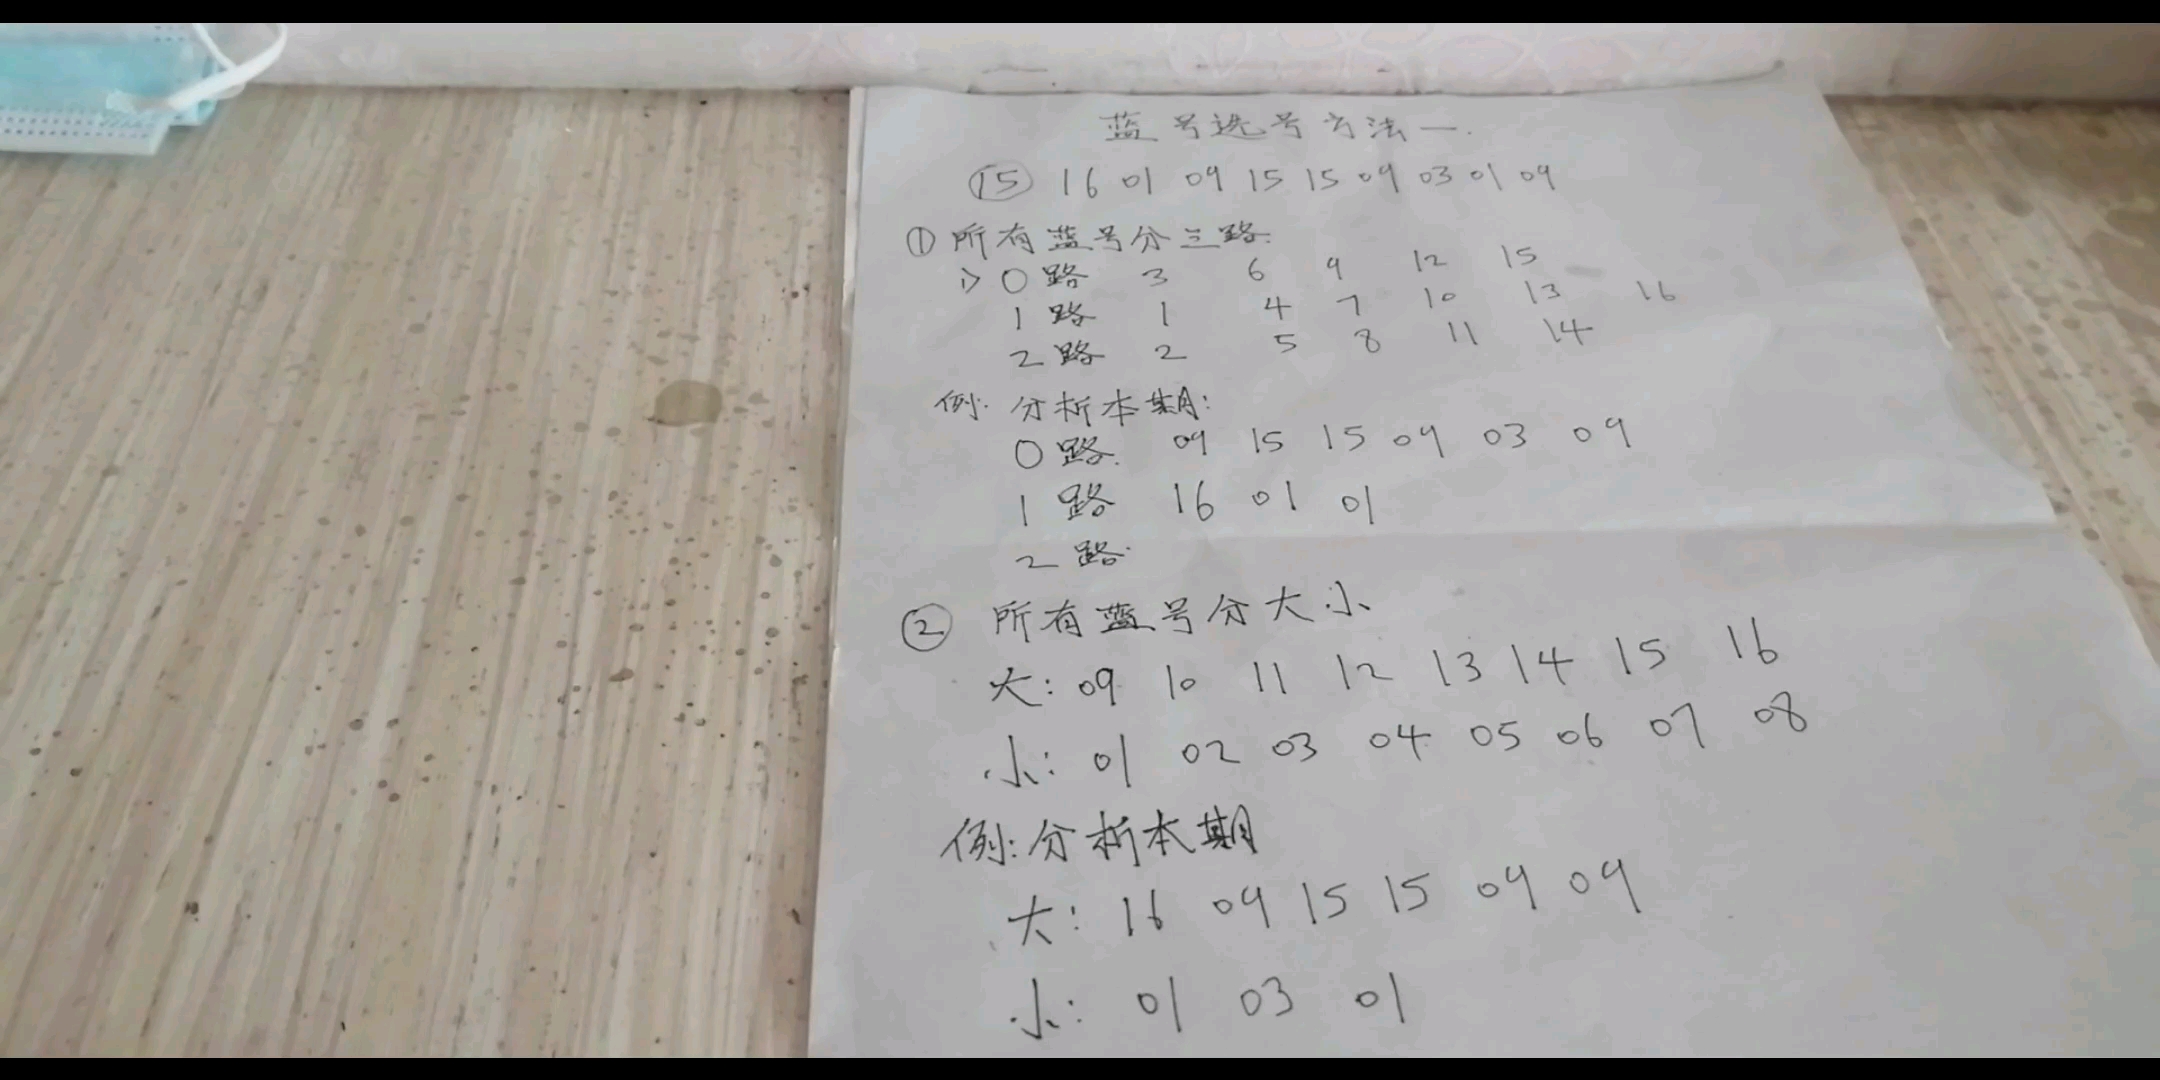 蓝号选号方法一.
15 16 01 09 15 15 09 03 01 09
① 所有蓝号分三路.
1> 0路 3 6 9 12 15
1路 1 4 7 10 13 16
2路 2 5 8 11 14
例: 分析本期:
0路. 09 15 15 09 03 09
1路 16 01 01
2路.
② 所有蓝号分大小
大: 09 10 11 12 13 14 15 16
小: 01 02 03 04 05 06 07 08
例: 分析本期
大: 16 09 15 15 09 09
小: 01 03 01